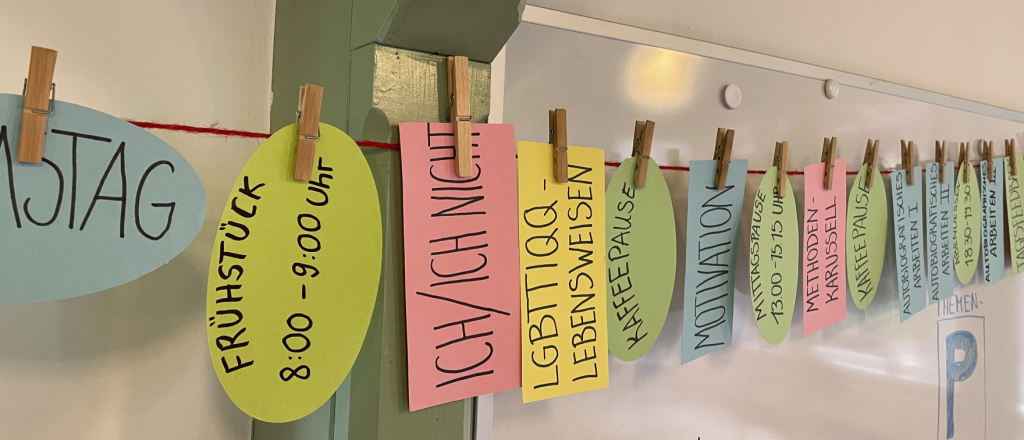 MSTAG
FRÜHSTÜCK
8:00 - 9:00 Uhr
ICH/ICH NICHT
LGBTTIQQ-
LEBENSWEISEN
KAFFEEPAUSE
MOTIVATION
MITTAGSPAUSE
13:00 - 15:15 UHR
METHODEN-
KARUSSELL
KAFFEEPAUSE
AUTOBIOGRAFISCHES
ARBEITEN I
AUTOBIOGRAFISCHES
ARBEITEN II
18:30 - 19:30
ARBEITEN
THEMEN-
P